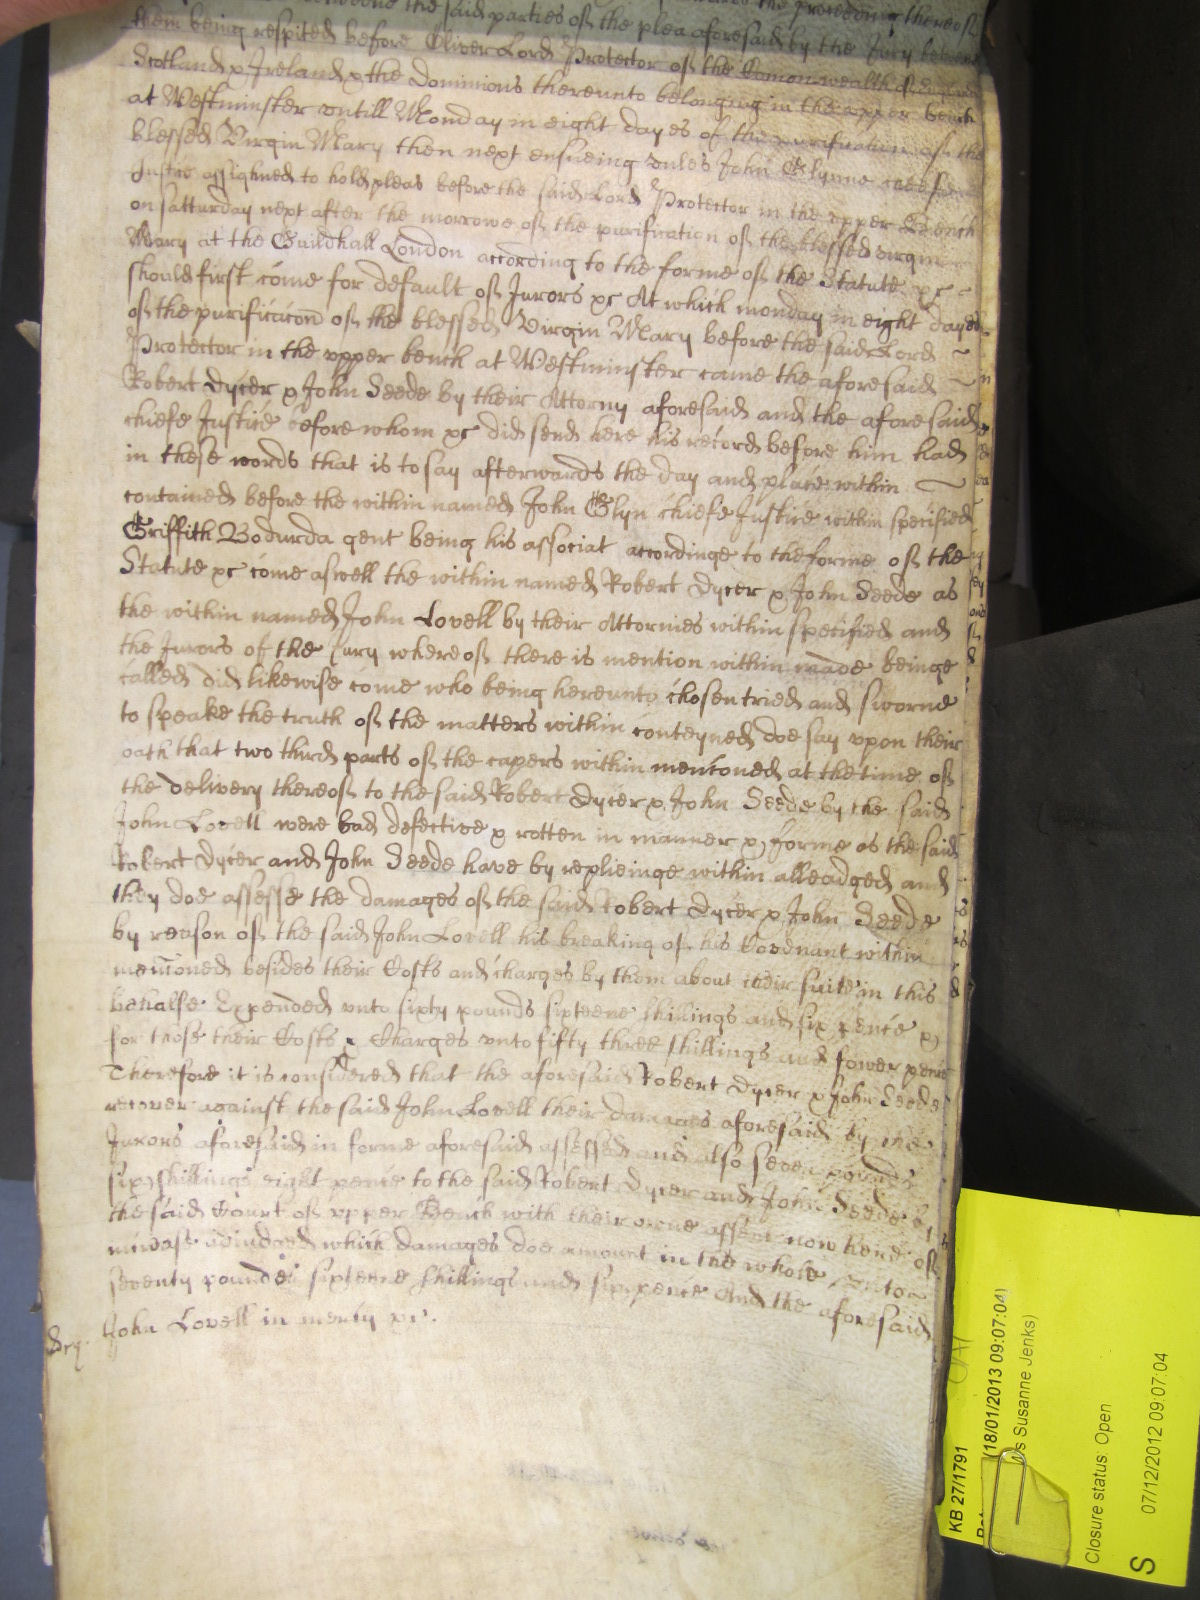 betweene the said parties of the plea aforesaid by the Jury betweene
them being respited before Oliver Lord Protector of the Comonwealth of England
Scotland & Ireland & the dominions thereunto belonging in the upper bench
at Westminster untill Monday in eight dayes of the purification of the
blessed Virgin Mary then next ensueing unles John Glynne cheefe
Justice assighned to hold pleas before the said Lord Protector in the upper Bench
on satturday next after the morrowe of the purification of the blessed virgin
Mary at the Guildhall London according to the forme of the Statute &c
should first come for default of Jurors &c At which monday in eight dayes
of the purificacon of the blessed Virgin Mary before the said Lord
Protector in the vpper bench at Westminster came the aforesaid
Robert Dycer & John Seede by their Attorny aforesaid and the aforesaid
chiefe Justice before whom &c did send here his record before him had
in these words that is to say afterwards the day and place within
contained before the within named John Glyn chiefe Justice within specified
Griffith Bodurda gent being his associat accordinge to the forme of the
Statute &c come aswell the within named Robert Dycer & John Seede as
the within named John Lovell by their Attornies within specified and
the Jurors of the Jury whereof there is mention within made beinge
called did likewise come who being hereunto chosen tried and sworne
to speake the truth of the matters within conteyned doe say vpon their
oath that two third parts of the capers within mencioned at the time of
the delivery thereof to the said Robert Dycer & John Seede by the said
John Lovell were bad defective & rotten in manner & forme as the said
Robert Dycer and John Seede have by replieinge within alleadged and
they doe assesse the damages of the said Robert Dycer & John Seede
by reason of the said John Lovell his breaking of his Covenant within
mencioned besides their Costs and charges by them about their suite in this
behalfe Expended vnto sixty pounds sixteene shillings and six pence &
for those their Costs & Charges vnto fifty three shillings and fower pence
Therefore it is considered that the aforesaid Robert Dycer & John Seede
recover against the said John Lovell their damages aforesaid by the
Jurors aforesaid in forme aforesaid assessed and also seven pounds
six shillings eight pence to the said Robert Dycer and John Seede by
the said Court of vpper Bench with their owne assent now here of
increase adiudged which damages doe amount in the whole vnto
seventy poundes sixteene shillings and six pence And the aforesaid
John Lovell in mercy &c.
KB 27/1791
(18/01/2013 09:07:04)
s Susanne Jenks)
Closure status: Open
07/12/2012 09:07:04
S